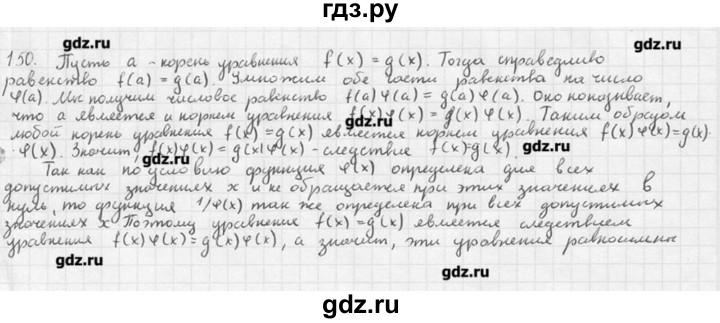 гдз.ру
gdz.ru gdz.ru
150. Пусть a - корень уравнения f(x) = g(x). Тогда справедливо
равенство f(a) = g(a). Умножим обе части равенства на число
φ(a). Мы получим числовое равенство f(a)φ(a) = g(a)φ(a). Оно показывает,
gdz.ru
что a является и корнем уравнения f(x)φ(x) = g(x)φ(x). Таким образом
любой корень уравнения f(x) = g(x) является корнем уравнения f(x)φ(x) = g(x)·
·φ(x). Значит, f(x)φ(x) = g(x)φ(x) - следствие f(x)=g(x).
gdz.ru gdz.ru
Так как по условию функция φ(x) определена для всех
допустимых значениях x и не обращается при этих значениях в
нуль, то функция 1/φ(x) так же определена при всех допустимых
значениях x Поэтому уравнения f(x) = g(x) является следствием
уравнения f(x)φ(x) = g(x)φ(x), а значит, эти уравнения равносильны
gdz.ru gdz.ru
gdz.ru